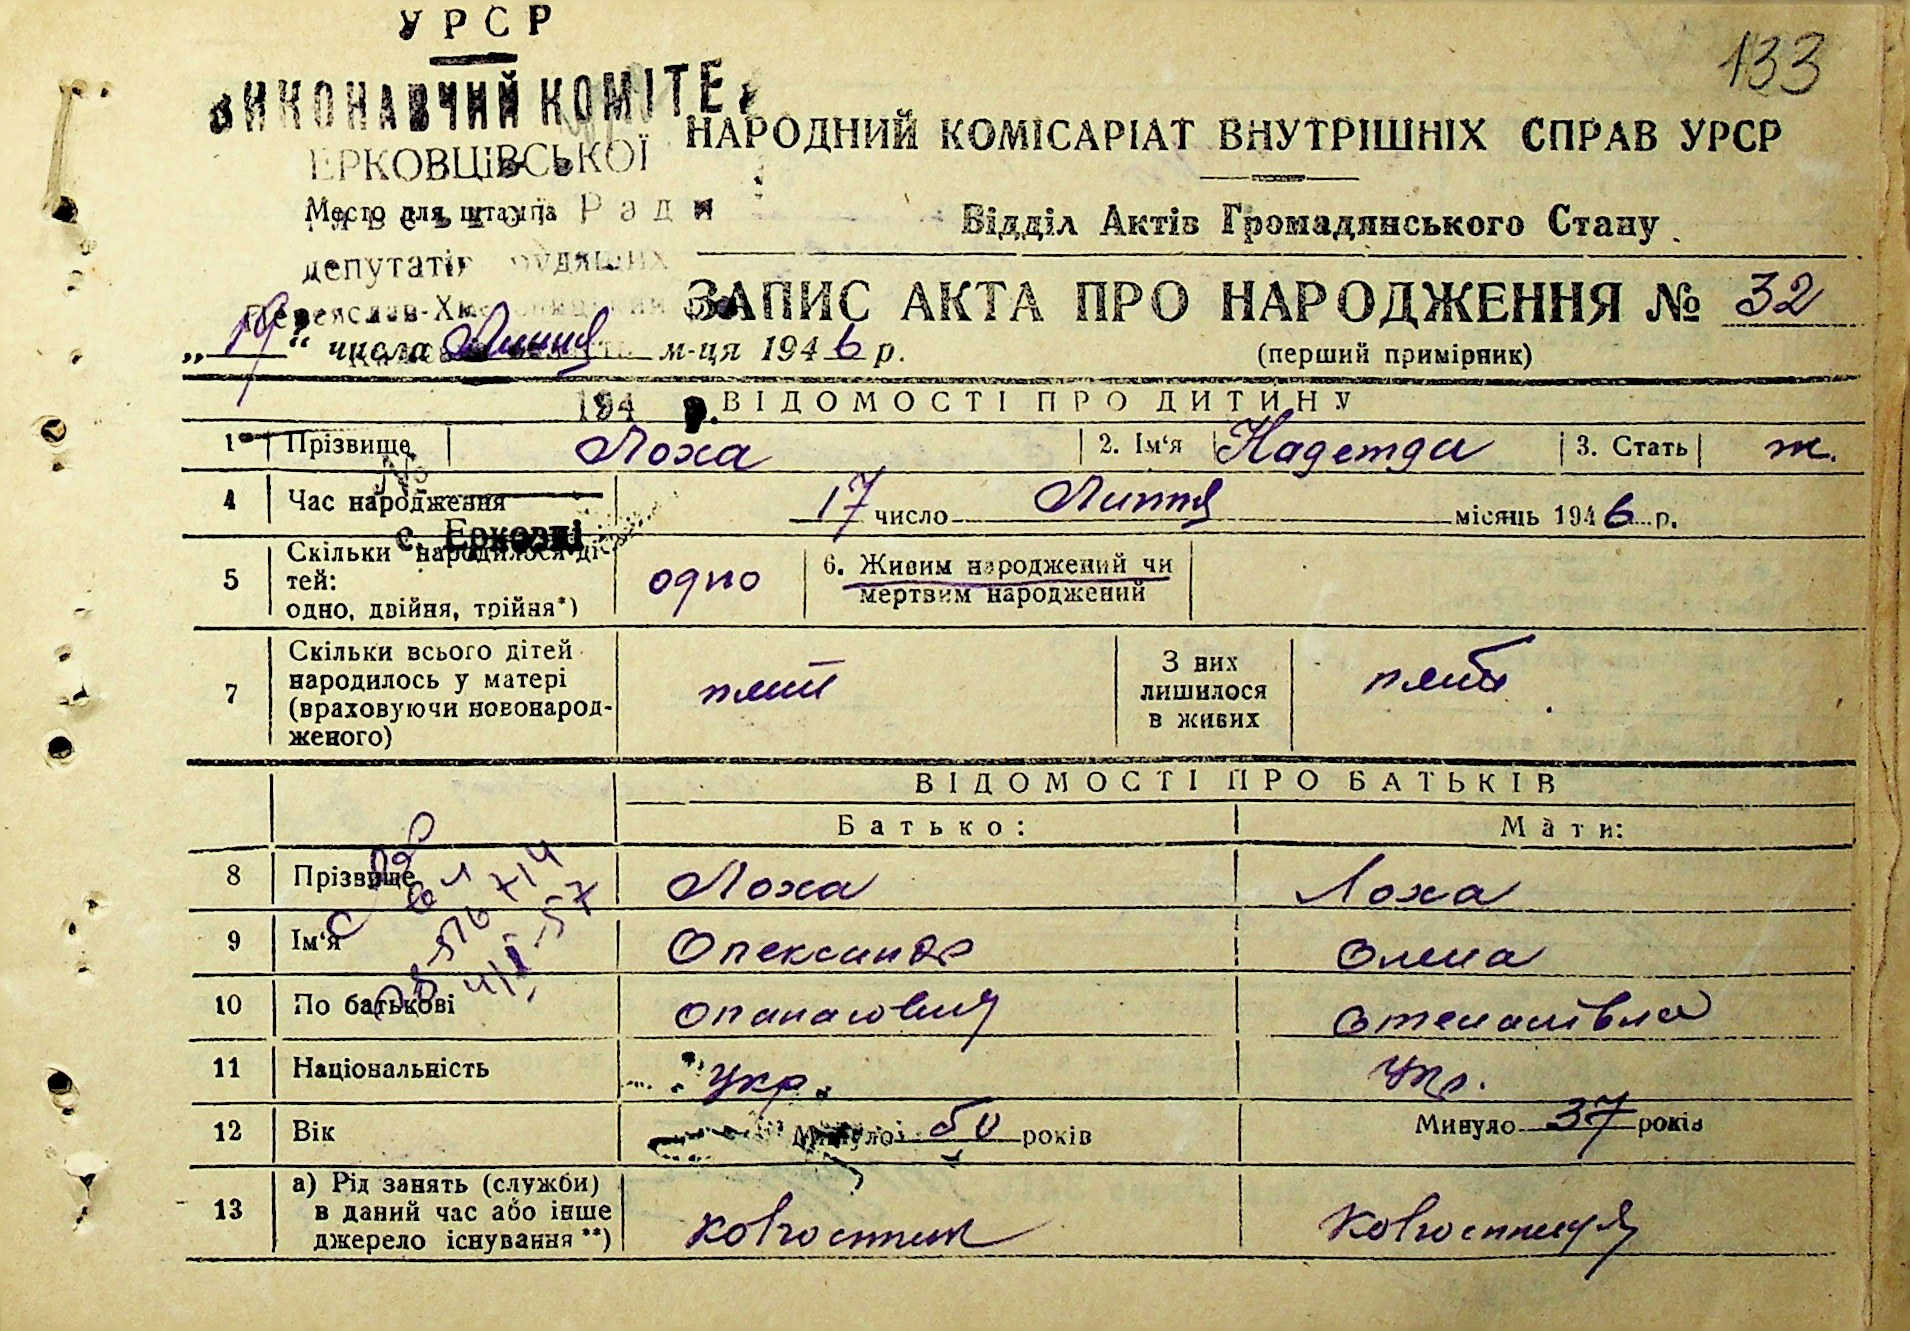 УРСР
ВИКОНАВЧИЙ КОМІТЕ
133
ЕРКОВЦІВСЬКОЇ
НАРОДНИЙ КОМІСАРІАТ ВНУТРІШНІХ СПРАВ УРСР
Место для штампа Ради
Відділ Актів Громадянського Стану
депутатів трудящих
ЗАПИС АКТА ПРО НАРОДЖЕННЯ № 32
Переяслав-Хмельницький
„19“ числа Липня м-ця 1946 р.
(перший примірник)
194 р.
ВІДОМОСТІ ПРО ДИТИНУ
1 Прізвище Лоха 2. Ім'я Надежда 3. Стать ж.
№
4 Час народження 17 число Липня місяць 1946 р.
с. Ерковці
5 Скільки народилося ді-
тей:
одно, двійня, трійня*) одно
6. Живим народжений чи
мертвим народжений
7 Скільки всього дітей
народилось у матері
(враховуючи новонарод-
женого)
З них
лишилося
в живих
ВІДОМОСТІ ПРО БАТЬКІВ
Батько: Мати:
8 Прізвище Лоха Лоха
9 Ім'я Олександр Олена
10 По батькові Опанасович Степанівна
11 Національність укр. укр.
12 Вік Минуло 50 років Минуло 37 років
13 а) Рід занять (служби)
в даний час або інше
джерело існування**) Ковгоспник Ковгоспниця